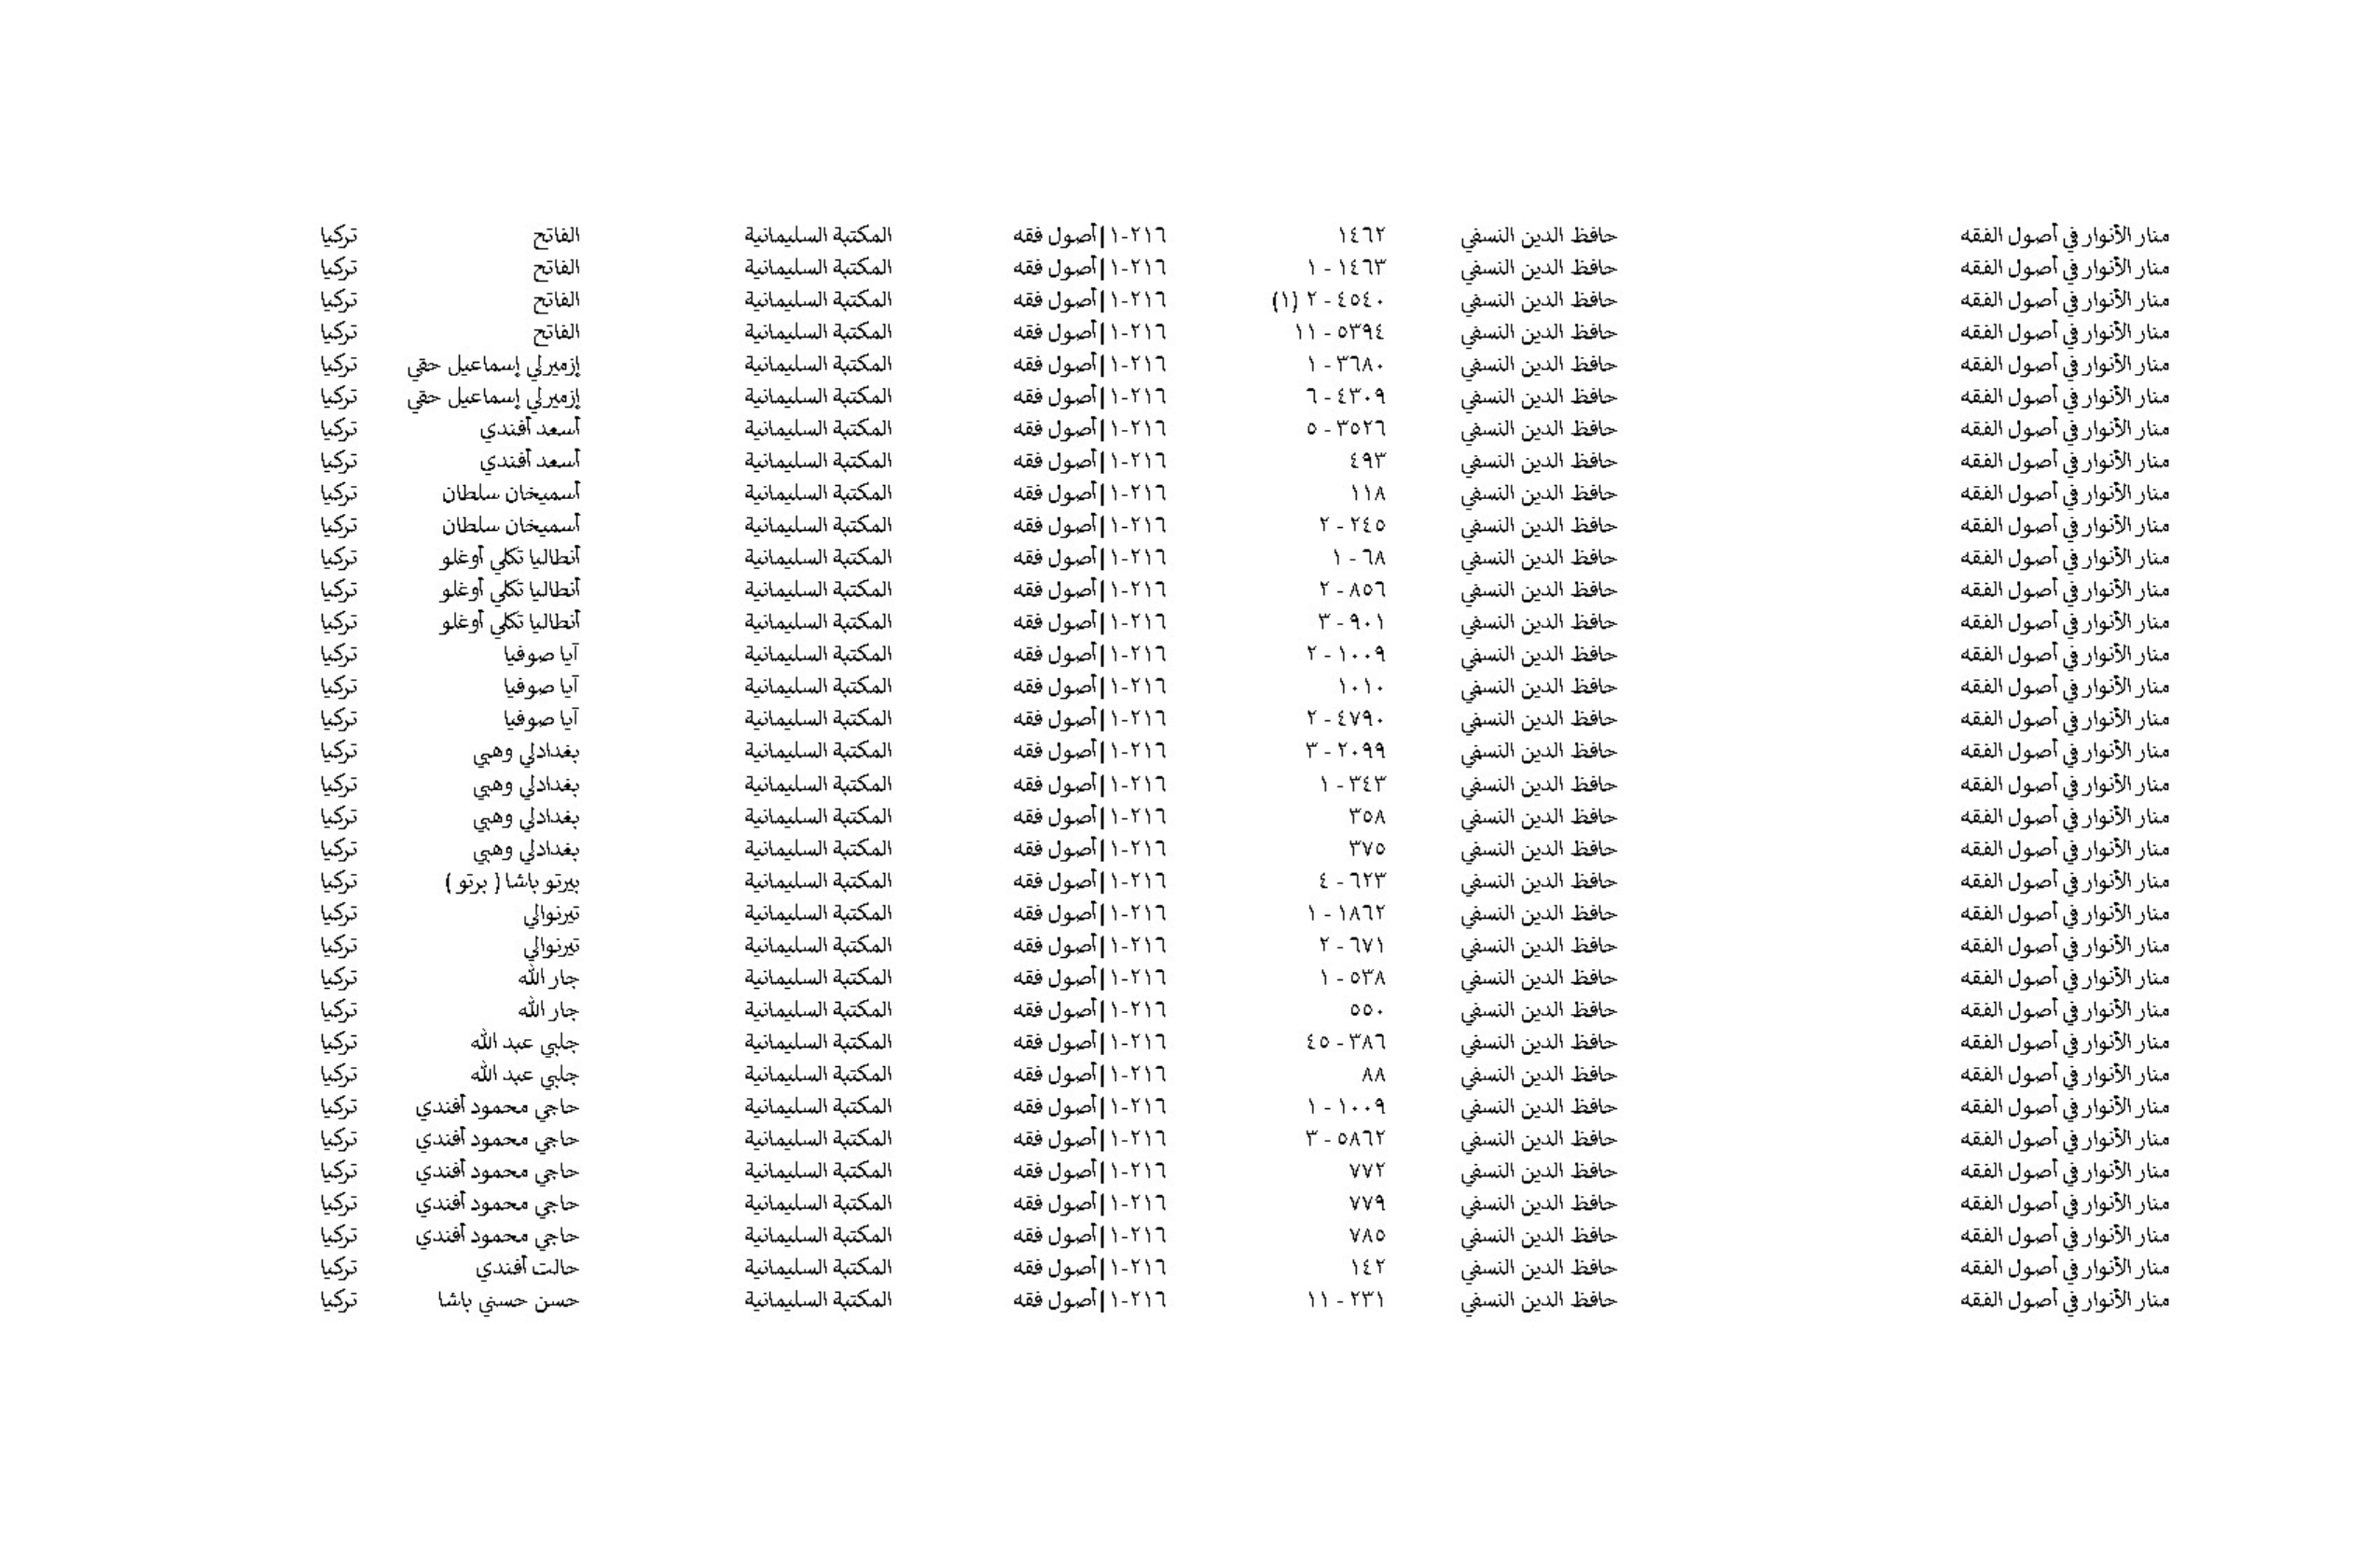 منار الأنوار في أصول الفقه حافظ الدين النسفي ١٤٦٢ ٢١٦-١ | أصول فقه المكتبة السليمانية الفاتح تركيا
منار الأنوار في أصول الفقه حافظ الدين النسفي ١٤٦٣ - ١ ٢١٦-١ | أصول فقه المكتبة السليمانية الفاتح تركيا
منار الأنوار في أصول الفقه حافظ الدين النسفي ٤٥٤٠ - ٢ (١) ٢١٦-١ | أصول فقه المكتبة السليمانية الفاتح تركيا
منار الأنوار في أصول الفقه حافظ الدين النسفي ٥٣٩٤ - ١١ ٢١٦-١ | أصول فقه المكتبة السليمانية الفاتح تركيا
منار الأنوار في أصول الفقه حافظ الدين النسفي ٣٦٨٠ - ١ ٢١٦-١ | أصول فقه المكتبة السليمانية إزميرلي إسماعيل حقي تركيا
منار الأنوار في أصول الفقه حافظ الدين النسفي ٤٣٠٩ - ٦ ٢١٦-١ | أصول فقه المكتبة السليمانية إزميرلي إسماعيل حقي تركيا
منار الأنوار في أصول الفقه حافظ الدين النسفي ٣٥٢٦ - ٥ ٢١٦-١ | أصول فقه المكتبة السليمانية أسعد أفندي تركيا
منار الأنوار في أصول الفقه حافظ الدين النسفي ٤٩٣ ٢١٦-١ | أصول فقه المكتبة السليمانية أسعد أفندي تركيا
منار الأنوار في أصول الفقه حافظ الدين النسفي ١١٨ ٢١٦-١ | أصول فقه المكتبة السليمانية أسميخان سلطان تركيا
منار الأنوار في أصول الفقه حافظ الدين النسفي ٢٤٥ - ٢ ٢١٦-١ | أصول فقه المكتبة السليمانية أسميخان سلطان تركيا
منار الأنوار في أصول الفقه حافظ الدين النسفي ٦٨ - ١ ٢١٦-١ | أصول فقه المكتبة السليمانية أنطاليا تكلي أوغلو تركيا
منار الأنوار في أصول الفقه حافظ الدين النسفي ٨٥٦ - ٢ ٢١٦-١ | أصول فقه المكتبة السليمانية أنطاليا تكلي أوغلو تركيا
منار الأنوار في أصول الفقه حافظ الدين النسفي ٩٠١ - ٣ ٢١٦-١ | أصول فقه المكتبة السليمانية أنطاليا تكلي أوغلو تركيا
منار الأنوار في أصول الفقه حافظ الدين النسفي ١٠٠٩ - ٢ ٢١٦-١ | أصول فقه المكتبة السليمانية آيا صوفيا تركيا
منار الأنوار في أصول الفقه حافظ الدين النسفي ١٠١٠ ٢١٦-١ | أصول فقه المكتبة السليمانية آيا صوفيا تركيا
منار الأنوار في أصول الفقه حافظ الدين النسفي ٤٧٩٠ - ٢ ٢١٦-١ | أصول فقه المكتبة السليمانية آيا صوفيا تركيا
منار الأنوار في أصول الفقه حافظ الدين النسفي ٢٠٩٩ - ٣ ٢١٦-١ | أصول فقه المكتبة السليمانية بغدادلي وهبي تركيا
منار الأنوار في أصول الفقه حافظ الدين النسفي ٣٤٣ - ١ ٢١٦-١ | أصول فقه المكتبة السليمانية بغدادلي وهبي تركيا
منار الأنوار في أصول الفقه حافظ الدين النسفي ٣٥٨ ٢١٦-١ | أصول فقه المكتبة السليمانية بغدادلي وهبي تركيا
منار الأنوار في أصول الفقه حافظ الدين النسفي ٣٧٥ ٢١٦-١ | أصول فقه المكتبة السليمانية بغدادلي وهبي تركيا
منار الأنوار في أصول الفقه حافظ الدين النسفي ٦٢٣ - ٤ ٢١٦-١ | أصول فقه المكتبة السليمانية بيرتو باشا ( برتو ) تركيا
منار الأنوار في أصول الفقه حافظ الدين النسفي ١٨٦٢ - ١ ٢١٦-١ | أصول فقه المكتبة السليمانية تيرنوالي تركيا
منار الأنوار في أصول الفقه حافظ الدين النسفي ٦٧١ - ٢ ٢١٦-١ | أصول فقه المكتبة السليمانية تيرنوالي تركيا
منار الأنوار في أصول الفقه حافظ الدين النسفي ٥٣٨ - ١ ٢١٦-١ | أصول فقه المكتبة السليمانية جار الله تركيا
منار الأنوار في أصول الفقه حافظ الدين النسفي ٥٥٠ ٢١٦-١ | أصول فقه المكتبة السليمانية جار الله تركيا
منار الأنوار في أصول الفقه حافظ الدين النسفي ٣٨٦ - ٤٥ ٢١٦-١ | أصول فقه المكتبة السليمانية جلبي عبد الله تركيا
منار الأنوار في أصول الفقه حافظ الدين النسفي ٨٨ ٢١٦-١ | أصول فقه المكتبة السليمانية جلبي عبد الله تركيا
منار الأنوار في أصول الفقه حافظ الدين النسفي ١٠٠٩ - ١ ٢١٦-١ | أصول فقه المكتبة السليمانية حاجي محمود أفندي تركيا
منار الأنوار في أصول الفقه حافظ الدين النسفي ٥٨٦٢ - ٣ ٢١٦-١ | أصول فقه المكتبة السليمانية حاجي محمود أفندي تركيا
منار الأنوار في أصول الفقه حافظ الدين النسفي ٧٧٢ ٢١٦-١ | أصول فقه المكتبة السليمانية حاجي محمود أفندي تركيا
منار الأنوار في أصول الفقه حافظ الدين النسفي ٧٧٩ ٢١٦-١ | أصول فقه المكتبة السليمانية حاجي محمود أفندي تركيا
منار الأنوار في أصول الفقه حافظ الدين النسفي ٧٨٥ ٢١٦-١ | أصول فقه المكتبة السليمانية حاجي محمود أفندي تركيا
منار الأنوار في أصول الفقه حافظ الدين النسفي ١٤٢ ٢١٦-١ | أصول فقه المكتبة السليمانية حالت أفندي تركيا
منار الأنوار في أصول الفقه حافظ الدين النسفي ٢٣١ - ١١ ٢١٦-١ | أصول فقه المكتبة السليمانية حسن حسني باشا تركيا